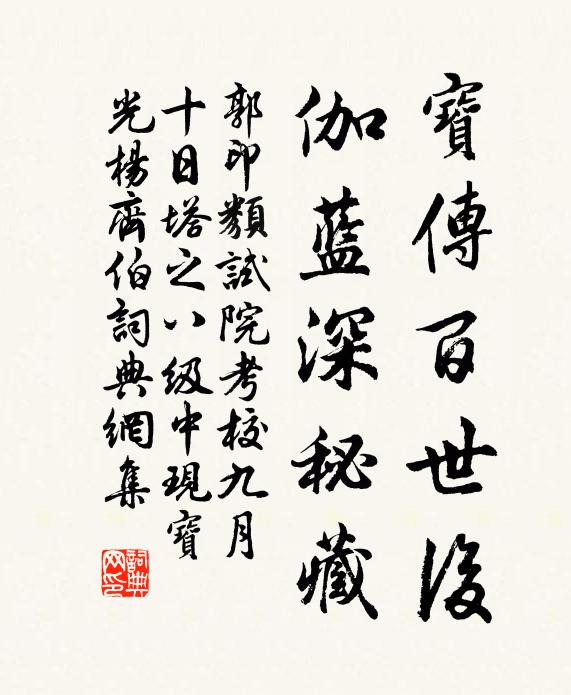 寶傳百世後
伽藍深秘藏
郭印類試院考校九月
十日塔之八級中現寶
光楊齊伯詞典網集
詞典網印